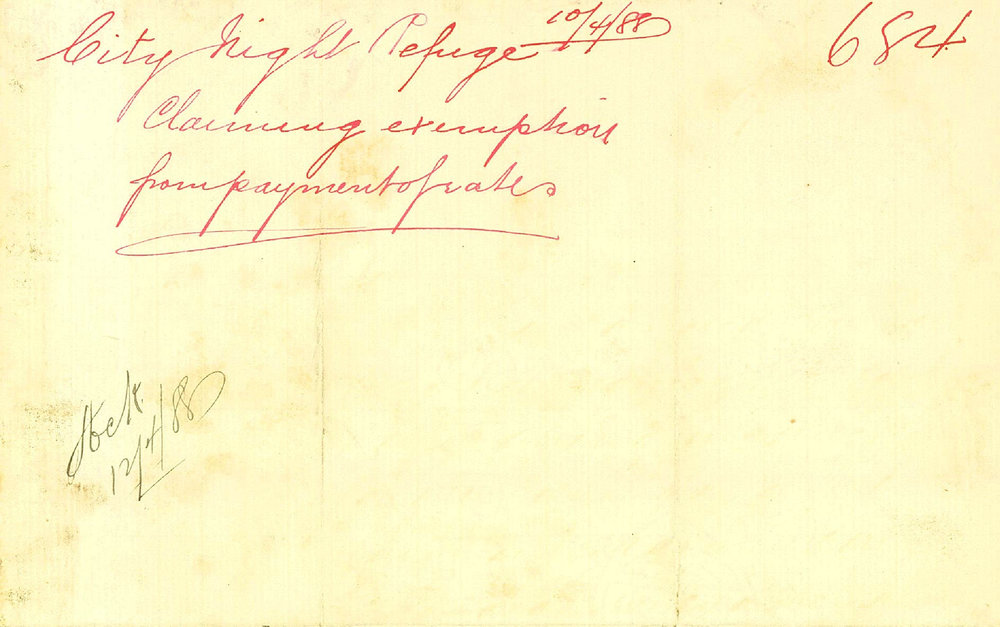 City Night Refuge 10/4/88 684
Claiming exemption
from payment of rates
12/4/88